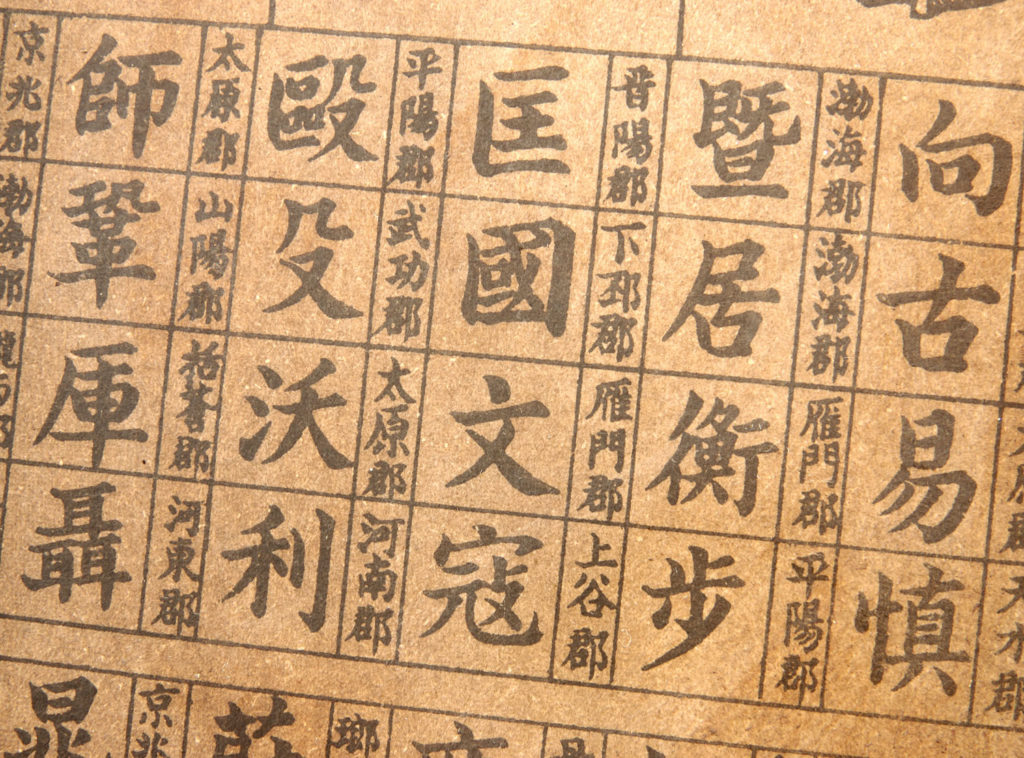 天水郡
向古易慎
渤海郡 渤海郡 雁門郡 平陽郡
暨居衡步
晋陽郡 下邳郡 雁門郡 上谷郡
匡國文寇
平陽郡 武功郡 太原郡 河南郡
毆殳沃利
太原郡 山陽郡 括蒼郡 河東郡
師鞏厙聶
京兆郡 渤海郡
瑯
京兆
晁